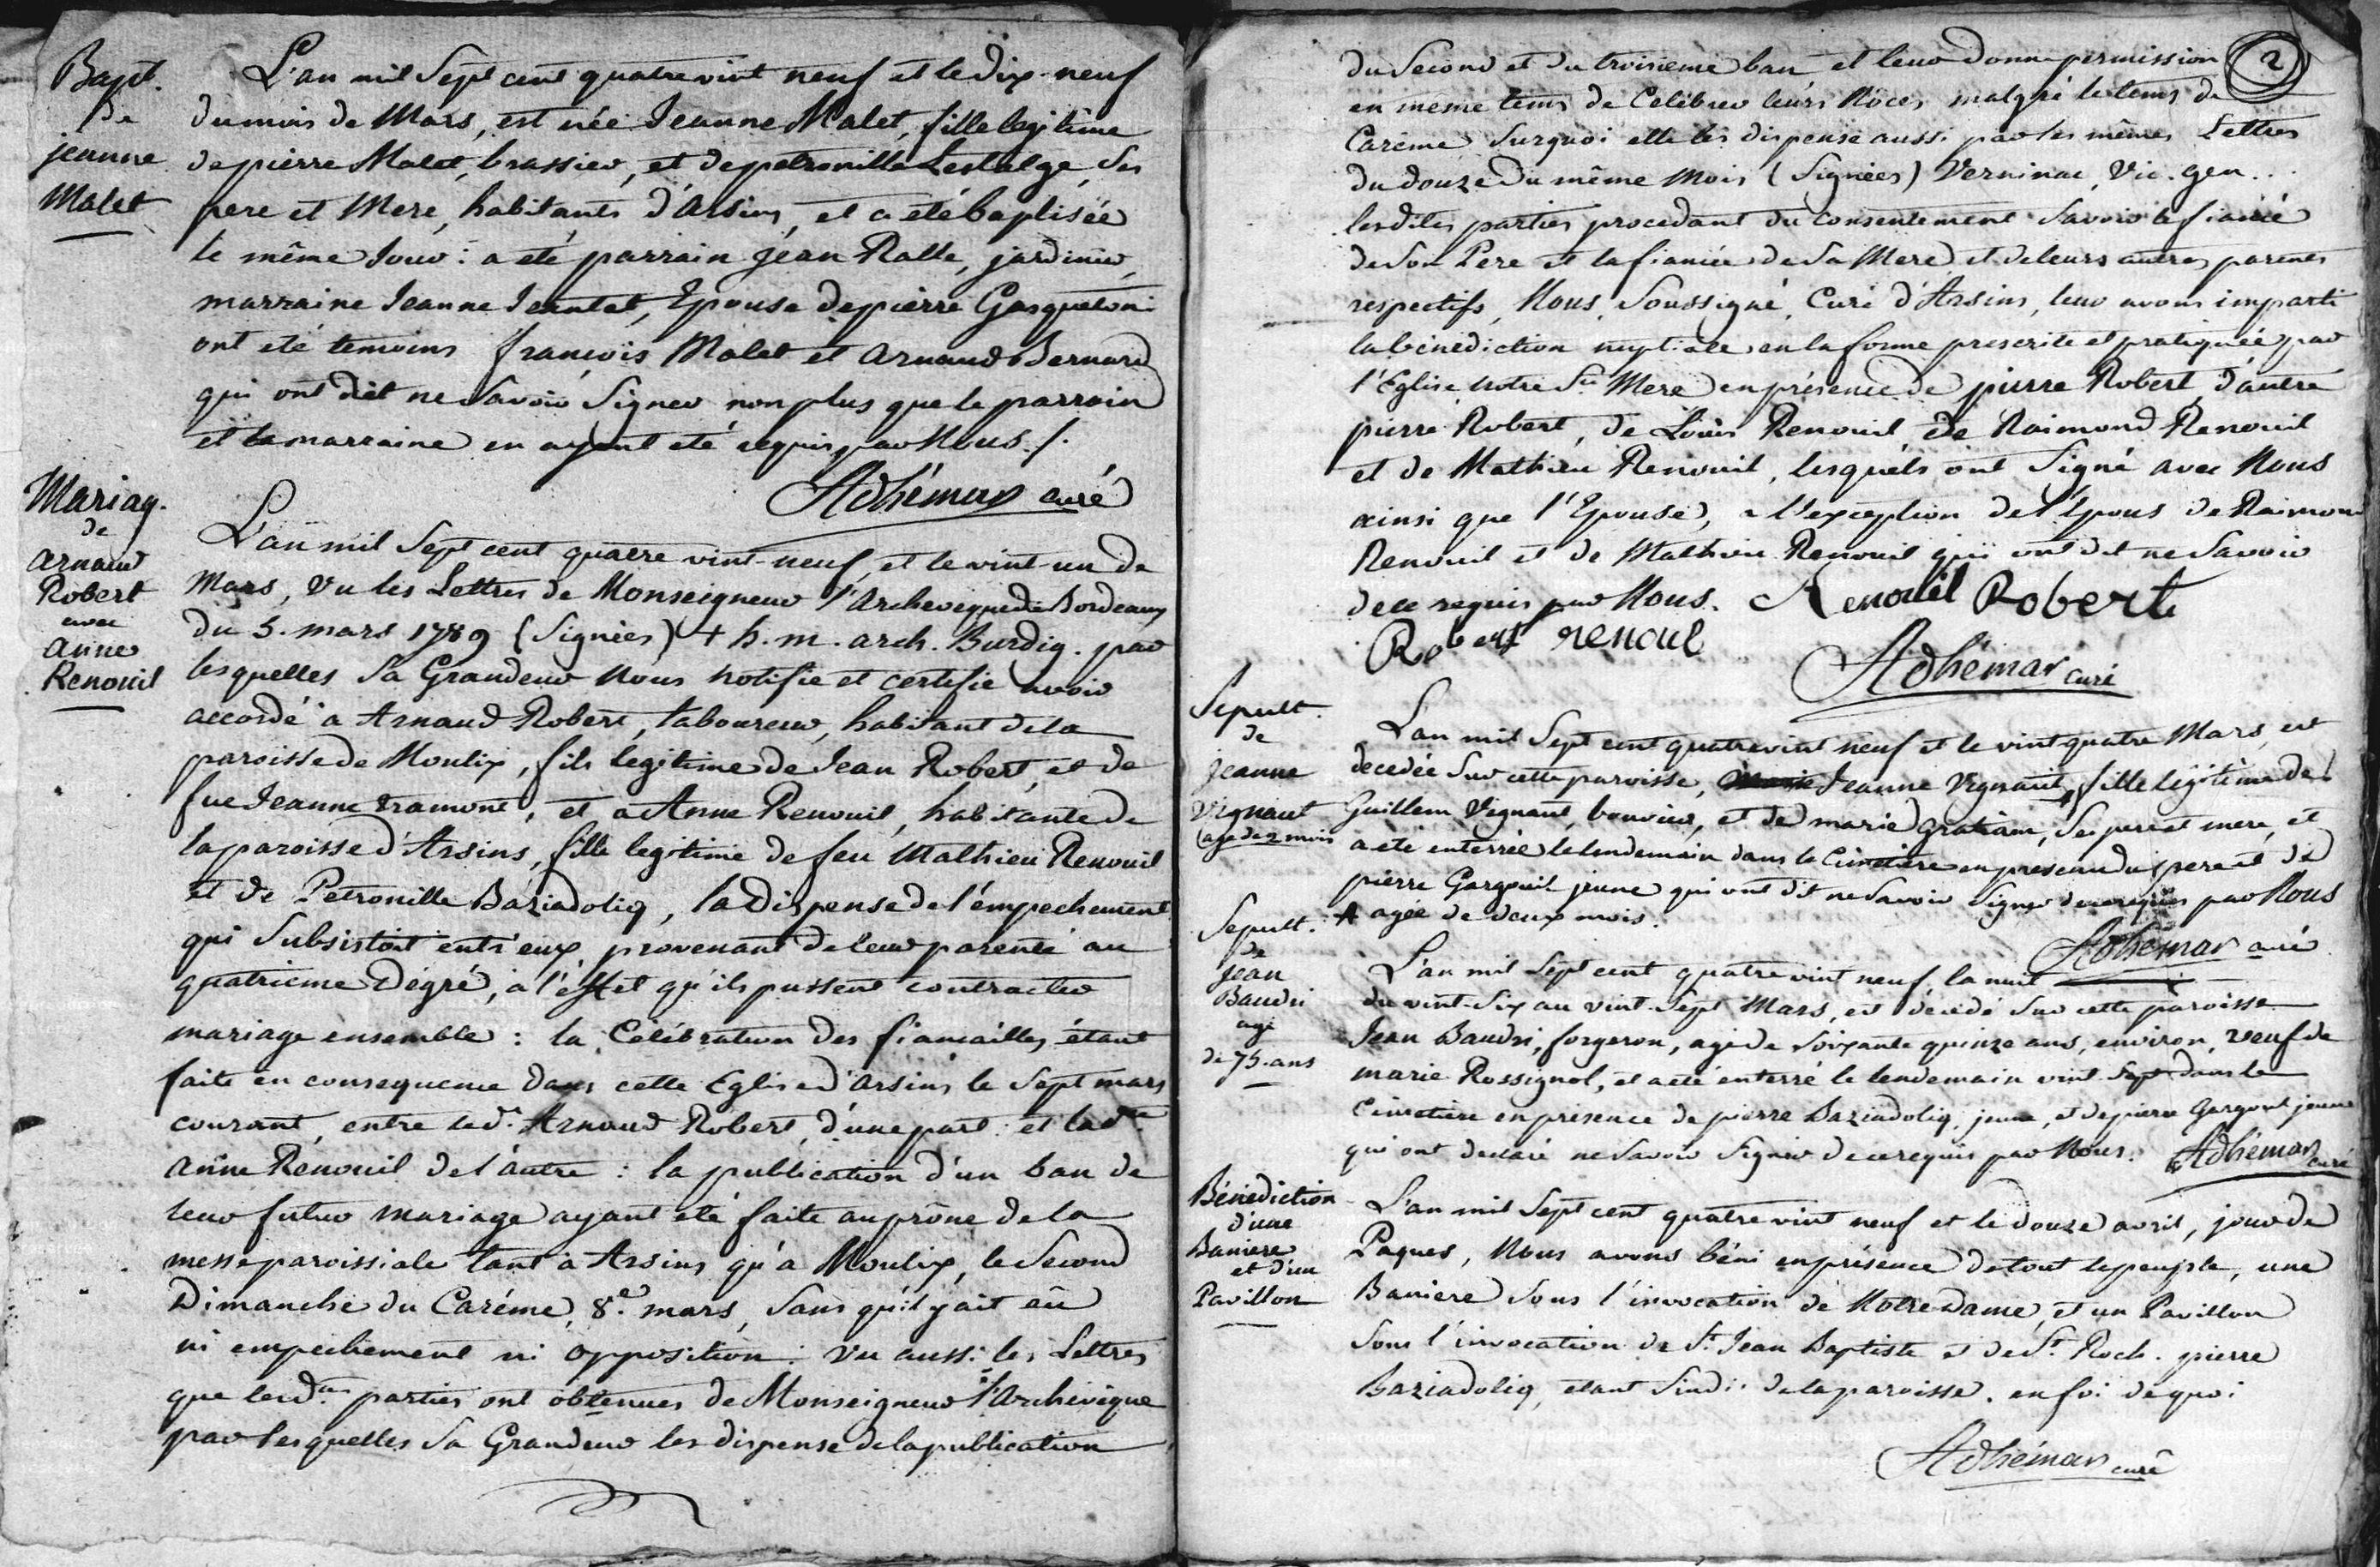 Bapt.
de
jeanne
Malet
L'an mil Sept cent quatre vint neuf et le dix-neuf
du mois de Mars, est née Jeanne Malet, fille legitime
de pierre Malet, brassier, et de petronille Lestalge, ses
pere et Mere, habitants d'Arsins, et a eté baptisée
le même Jour : a eté parrain jean Ralle, jardinier,
marraine Jeanne Jeantet, Epouse de pierre Gasqueton :
ont eté temoins françois Malet et Arnaud Bernard
qui ont dit ne Savoir Signer non plus que le parrain
et la marraine en ayant eté requis par Nous ./.
Adhémar curé
Mariag.
de
Arnaud
Robert
avec
Anne
Renouil
L'an mil Sept cent quatre vint-neuf, et le vint-un de
Mars, Vu les Lettres de Monseigneur l'Archeveque de Bordeaux
du 5. mars 1789 (Signées) + h. m. arch. Burdig. par
lesquelles Sa Grandeur Nous notifie et certifie avoir
accordé a Arnaud Robert, laboureur, habitant de la
paroisse de Moulix, fils legitime de Jean Robert, et de
fue Jeanne tramont, et a Anne Renouil, habitante de
la paroisse d'Arsins, fille legitime de feu Mathieu Renouil
et de Petronille Baziadoliq, la Dispense de l'émpechement
qui Subsistoit entr'eux, provenant de leur parenté au
quatrieme Dégré, a l'effet qu'ils pussent contracter
mariage ensemble : la Célébration des fiancailles étant
faite en consequence dans cette Eglise d'Arsins le Sept mars
courant, entre led. Arnaud Robert, d'une part : et lade.
Anne Renouil de l'autre : la publication d'un ban de
leur futur mariage ayant eté faite au prône de la
messe paroissiale tant à Arsins qu'à Moulix, le Second
Dimanche du Caréme, 8e. mars, Sans qu'il y ait eû
ni empechement ni opposition : vu aussi les Lettres
que lesdtes. parties ont obtenues de Monseigneur l'Archevêque
par lesquelles Sa Grandeur les dispense de la publication
2
du Second et du troisieme ban et leur donne permission
en même tems de Celébrer leurs Nôces malgré le tems de
Carême Surquoi elle les dispense aussi par les mêmes Lettres
du douze du même Mois (Signées) Verninac, Vic. gen...
lesdites parties procedant du consentement Savoir le fiancé
de Son Pere et la fiancée de Sa Mere et de leurs autres parents
respectifs, Nous, Soussigné, Curé d'Arsins, leur avons imparti
la bénédiction nuptiale en la forme prescrite et pratiquée par
l'Eglise notre Ste Mere en présence de pierre Robert, d'autre
pierre Robert, de Louis Renouil, de Raimond Renouil
et de Mathieu Renouil, lesquels ont Signé avec Nous
ainsi que l'Epouse, a l'exception de l'Epous de Raimond
Renouil et de Mathieu Renouil qui ont dit ne Savoir
de ce requis par Nous. Renouil Robert
Robert renouil
Adhémar curé
Sepult.
de
jeanne
Vignaut
(agée de 2 mois
L'an mil Sept cent quatrevint neuf et le vintquatre Mars, est
decedée Sur cette paroisse, Jeanne Vignaut, fille légitime de
Guillem Vignaut, bouvier, et de marie gratian, Ses pere et mere, et
a eté enterrée le lendemain dans le Cimetiere en presence du pere et de
pierre Gargouil jeune qui ont dit ne Savoir Signer de ce requis par Nous
+ agée de deux mois.
Adhémar curé
Sepult.
de
jean
Baudri
agé
de 75. ans
L'an mil Sept cent quatre vint neuf, la nuit
du vint-Six au vint-Sept Mars, est décédé Sur cette paroisse
Jean Baudri, forgeron, agé de Soixante quinze ans, environ, veuf de
marie Rossignol, et a eté enterré le lendemain vint-Sept dans le
Cimetiere en présence de pierre Baziadoliq, jeune, et de pierre Gargouil jeune
qui ont declaré ne Savoir Signer de ce requis par Nous. Adhémar curé
Bénédiction
d'une
Baniere
et d'un
Pavillon
L'an mil Sept cent quatre vint neuf et le douze avril, jour de
Paques, Nous avons béni en présence de tout le peuple, une
Baniere Sous l'invocation de Notre Dame, et un Pavillon
Sous l'invocation de St. Jean Baptiste et de St. Roch. pierre
Baziadoliq, etant Sindic de la paroisse. en foi de quoi
Adhémar curé